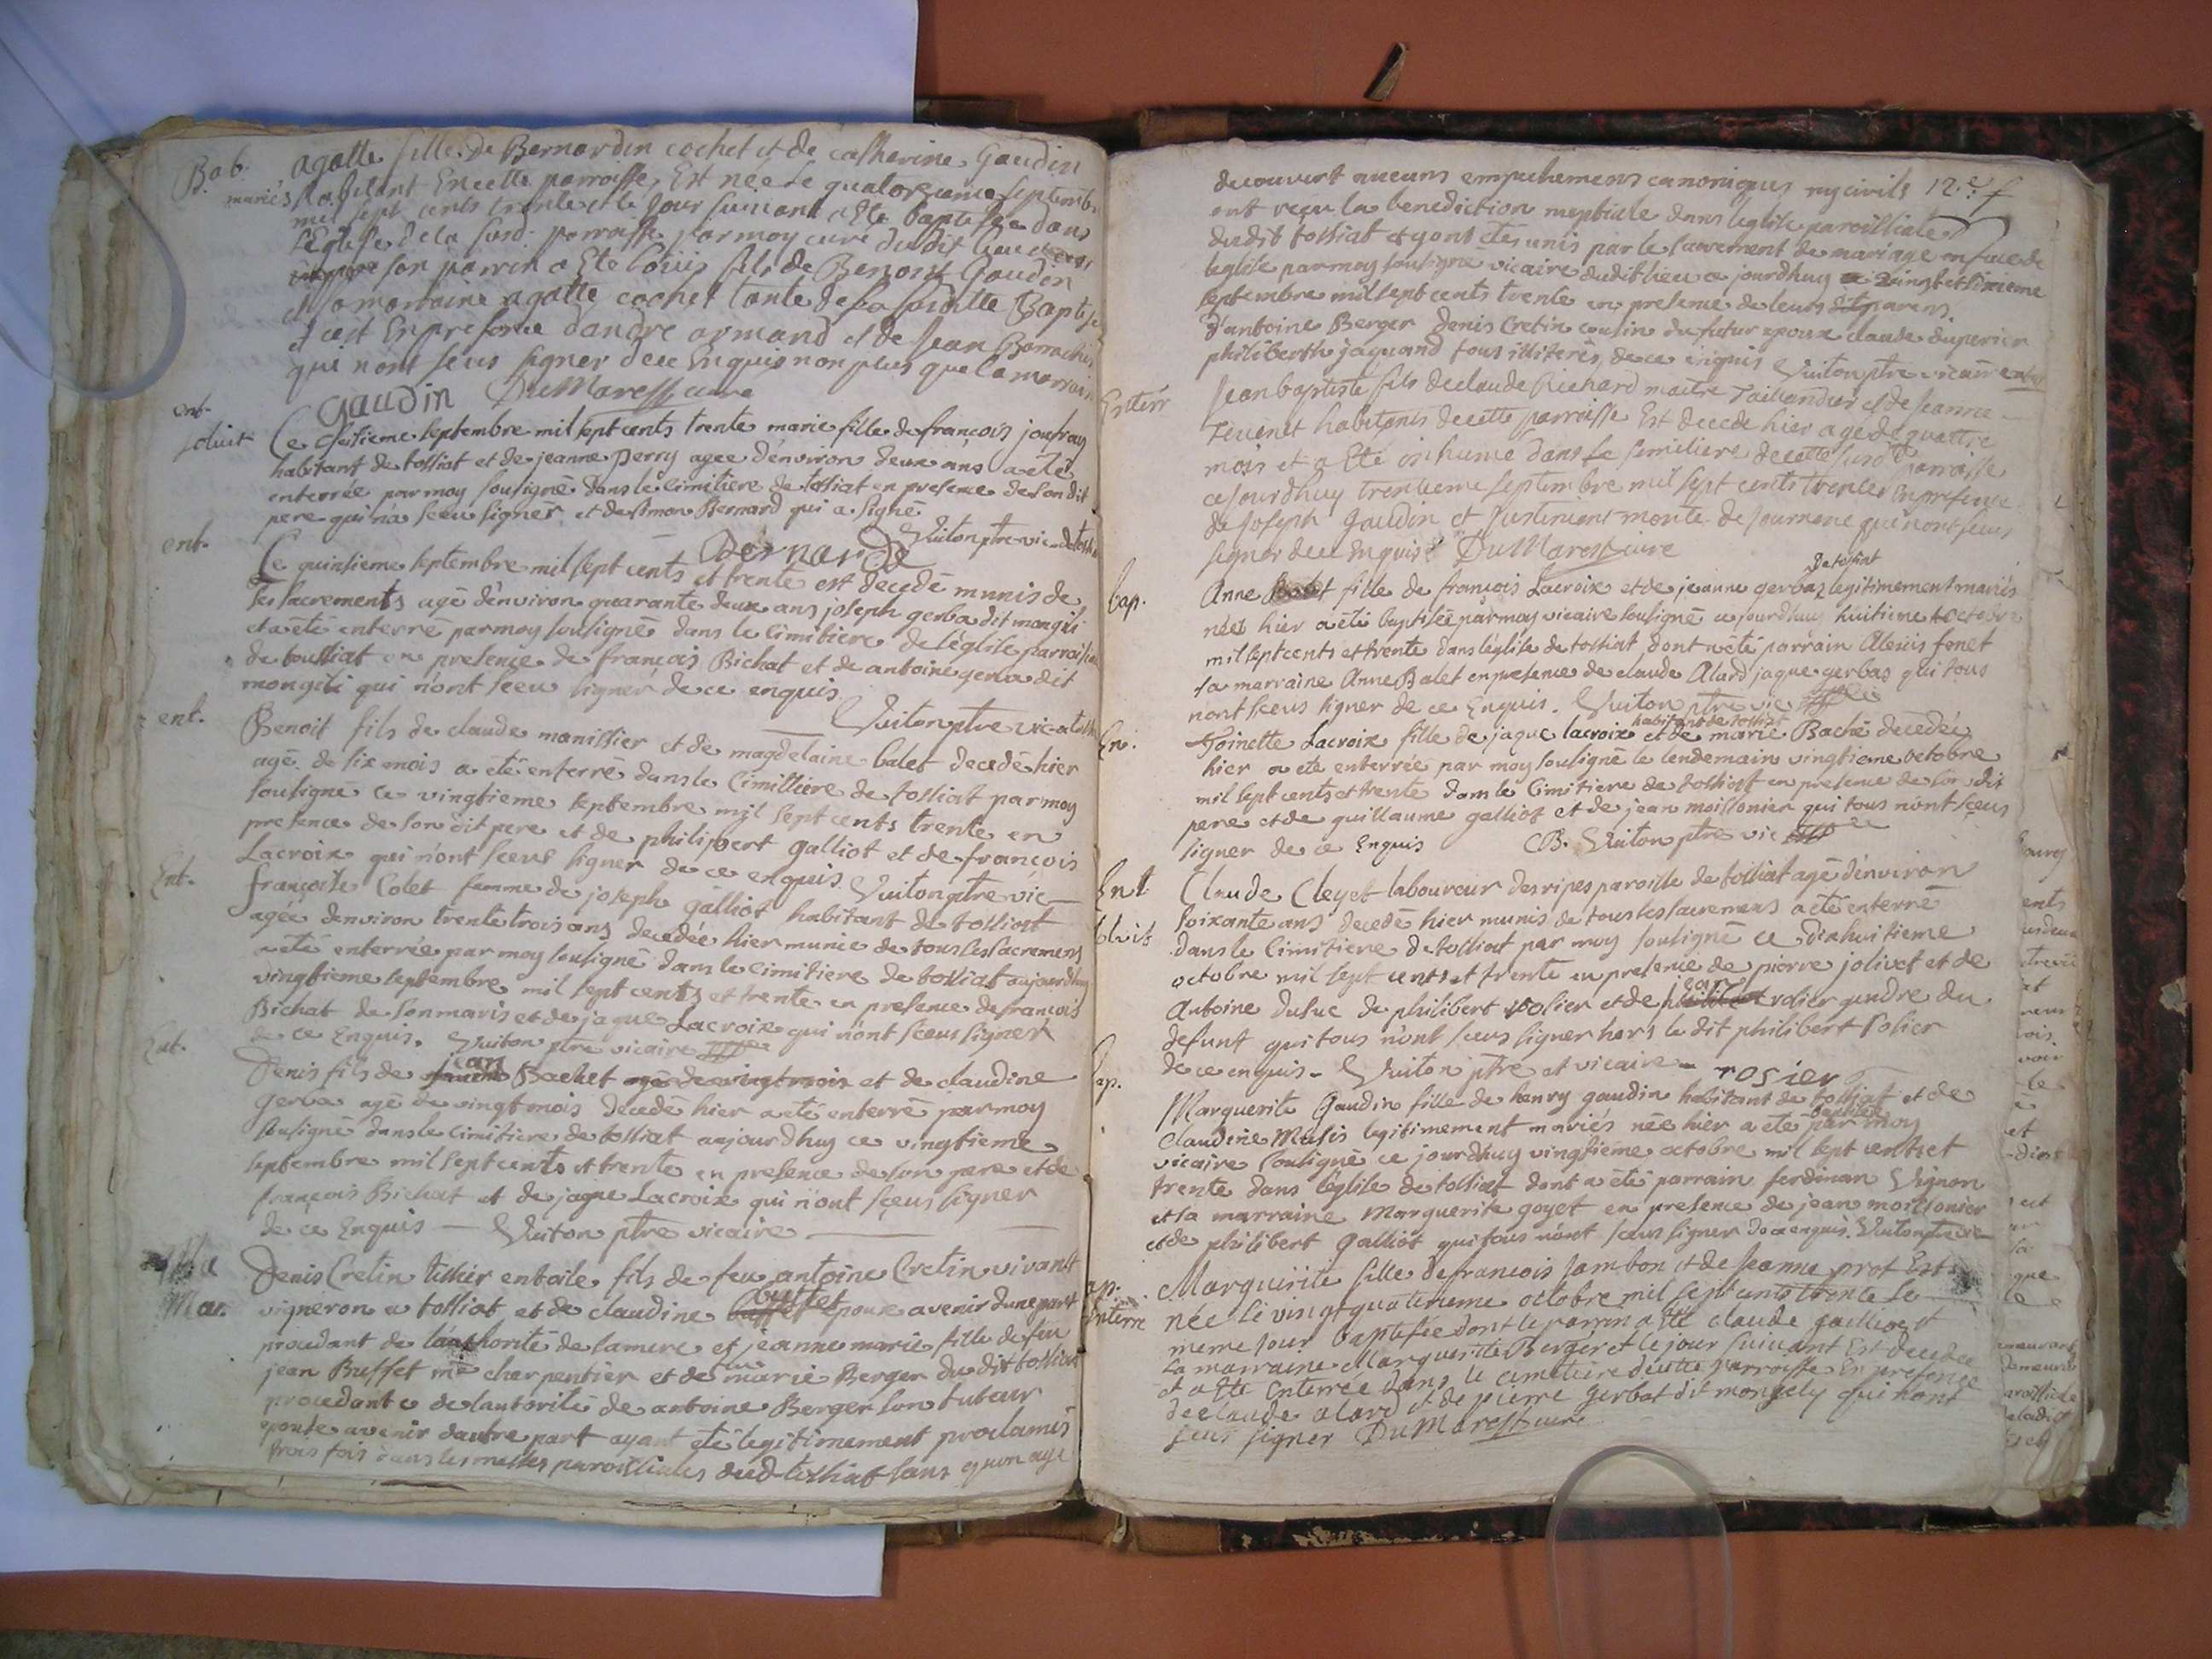 Bab. agatte fille de Bernardin cochet et de catherine Gaudin
mariés habitant En cette parroisse, Est née le quatorzieme septembre
mil sept cents trente et le jour suivant a Eté baptisée dans
L'Eglise de la susd. parroisse par moy curé dudit lieu
son parrin a Eté Loüis fils de Benoist Gaudin
et sa marraine agatte cochet tante de la susditte Baptisée
et cest En presence dandré armand et de Jean
qui nont sceus signer de ce Enquis non plus que la marraine
Gaudin DuMaresq cure
ent. Ce seisieme septembre mil sept cents trente marie fille de françois joufray
habitant de tossiat et de jeanne perry agée denviron deux ans a eté
enterrée par moy sousigné dans le cimitiere de tossiat en presence de son dit
pere qui na sceu signer et de simon Bernard qui a signé
Vuiton ptre vic de
Bernard
ent. Ce quinsieme septembre mil sept cents et trente est decedé munis de
ses sacrements agé denviron quarante deux ans joseph gerba dit mongili
et a été enterré par moy sousigné dans le cimitiere de l'église parroissiale
de toussiat en presence de françois Bichat et de antoine gerba dit
mongili qui n'ont sceu signer de ce enquis
Vuiton ptre vic a
ent. Benoit fils de claude manissier et de magdelaine balet decedé hier
agé de six mois a été enterré dans le cimitiere de tossiat par moy
sousigné ce vingtieme septembre mil sept cents trente en
presence de son dit pere et de philipert galliot et de françois
Lacroix qui n'ont sceus signer de ce enquis Vuiton ptre vic
Ent. françoise Colet femme de joseph galliot habitant de tossiat
agée denviron trente trois ans decedée hier munie de tous les sacremens
a été enterrée par moy sousigné dans le cimitiere de tossiat aujourdhuy
vingtieme septembre mil sept cents et trente en presence de françois
Bichat de son maris et de jaque Lacroix qui n'ont sceus signer
de ce Enquis. Vuiton ptre vicaire
Ent. Denis fils de jean Bachet agé de vingt mois et de claudine
Gerba agé de vingt mois decedé hier a été enterré par moy
sousigné dans le cimitiere de tossiat aujourdhuy ce vingtieme
septembre mil sept cents et trente en presence de son pere et de
françois Bichat et de jaque Lacroix qui n'ont sceus signer
de ce Enquis — Vuiton ptre vicaire —
Mar. Denis Cretin tissier en toile fils de feu antoine Cretin vivant
vigneron a tossiat et de claudine buffet epoux avenir dune part
procedant de l'authorité de sa mere et jeanne marie fille de feu
jean Buffet me charpentier et de marie Berger du dit tossiat
procedant e de lautorité de antoine Berger son tuteur
epouse avenir dautre part ayant eté legitimement proclamés
trois fois dans les messes paroissiales dud tossiat sans quon aye
decouvert aucuns empechemens canoniques ny civils 12.e f
ont reçu la benediction nuptiale dans leglise paroissiale
dudit tossiat et y ont étés unis par le sacrement de mariage en face de
leglise par moy sousigné vicaire dudit lieu ce jourdhuy vingt et sixieme
septembre mil sept cents trente en presence de leurs parens.
d'antoine Berger Denis Cretin cousin du futur epoux claude duperier
philiberth jaquand tous illiterés de ce enquis Vuiton ptre vicaire
Enterr Jean baptiste fils de claude Richard maitre Taillandier et de Jeanne
Tevenet habitants de cette parroisse Est decedé hier agé de quattre
mois et a Eté inhumé dans le simitiere de cette susd parroisse
ce jourdhuy trentieme septembre mil sept cents trente En presence
de Joseph Gaudin et Justinient monte de journans qui nont sceus
signer de ce Enquis DuMaresq cure
bap. Anne fille de françois Lacroix et de jeanne gerbaz de tossiat legitimement mariés
née hier a été baptisée par moy vicaire sousigné ce jourdhuy huitieme octobre
mil sept cents et trente dans l'église de tossiat dont a été parrain Alexis fonet
sa marraine Anne Balet en presence de claude Alard jaque gerbaz qui tous
nont sceus signer de ce Enquis. Vuiton ptre vic
En. Toinette Lacroix fille de jaque lacroix habitant de tossiat et de marie Baché decedée
hier a eté enterrée par moy sousigné le lendemain vingtieme octobre
mil sept cents et trente dans le cimitiere de tossiat en presence de son dit
pere et de guillaume galliot et de jean moissonier qui tous n'ont sceus
signer de ce Enquis CB. Vuiton ptre vic
Ent Claude Cleyet laboureur des ripes paroisse de tossiat agé denviron
soixante ans decedé hier munis de tous les sacremens a été enterré
dans le cimitiere de tossiat par moy sousigné ce dixhuitieme
octobre mil sept cents et trente en presence de pierre jolivet et de
Antoine dufuc de philibert rosier et de jean rosier gendre du
defunt qui tous n'ont sceus signer hors le dit philibert Rosier
de ce enquis - Vuiton ptre et vicaire - rosier
Bap. Marguerite Gaudin fille de henry gaudin habitant de tossiat et de
Claudine Massis legitimement mariés née hier a été baptisée par moy
vicaire sousigné ce jourdhuy vingtieme octobre mil sept cents et
trente dans l'église de tossiat dont a été parrain ferdinan Vignon
et sa marraine Marguerite goyet en presence de jean moissonier
et de philibert galliot qui tous n'ont sceus signer de ce enquis. Vuiton ptre vic
ap. Marguerite fille de francois Jambon et de Jeanne prot Est
Enterre née le vingt quatrieme octobre mil sept cents trente le
meme jour baptisée dont le parrin a Eté claude galliot et
la marraine Marguerite Berger et le jour suivant Est decedée
et a Eté Enterrée dans le cimetiere de cette parroisse En presence
de claude alard et de pierre gerbat dit mongely qui n'ont
sceus signer DuMaresq cure